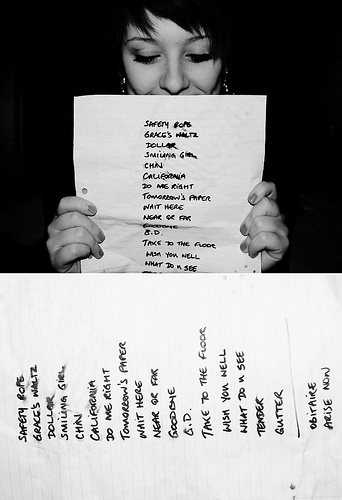 SAFETY ROPE
GRACE'S WALTZ
DOLLAR
SMILING GIRL
CHIN
CALIFORNIA
DO ME RIGHT
TOMORROW'S PAPER
WAIT HERE
NEAR OR FAR
GOODBYE
B.D.
TAKE TO THE FLOOR
WISH YOU WELL
WHAT DO U SEE
SAFETY ROPE
GRACE'S WALTZ
DOLLAR
SMILING GIRL
CHIN
CALIFORNIA
DO ME RIGHT
TOMORROW'S PAPER
WAIT HERE
NEAR OR FAR
GOODBYE
B.D.
TAKE TO THE FLOOR
WISH YOU WELL
WHAT DO U SEE
TENDER
GUTTER
OBITAIRE
ARISE NOW